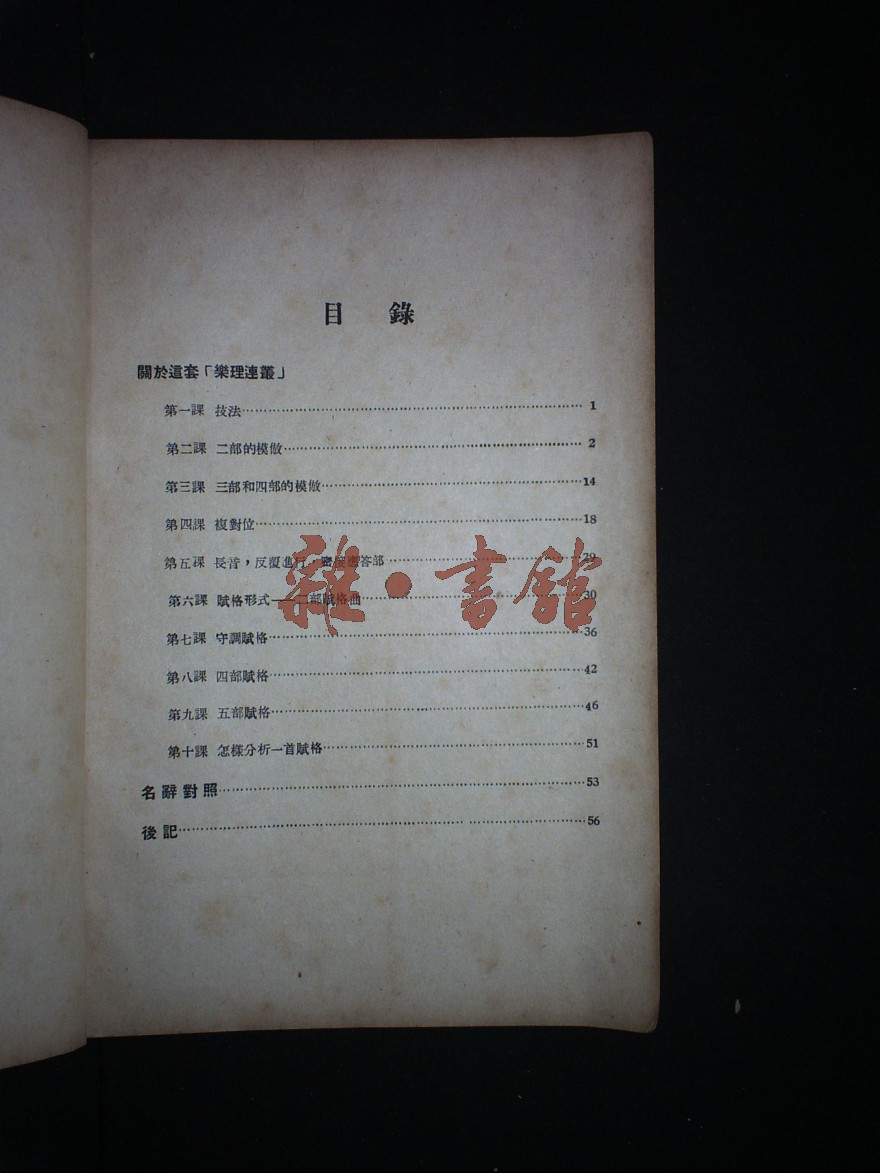 目 錄
關於這套「樂理連叢」
第一課 技法 1
第二課 二部的模倣 2
第三課 三部和四部的模倣 14
第四課 複對位 18
第五課 長音，反覆進行，密接應答部 29
第六課 賦格形式——二部賦格曲 30
第七課 守調賦格 36
第八課 四部賦格 42
第九課 五部賦格 46
第十課 怎樣分析一首賦格 51
名辭對照 53
後記 56
雜·書館